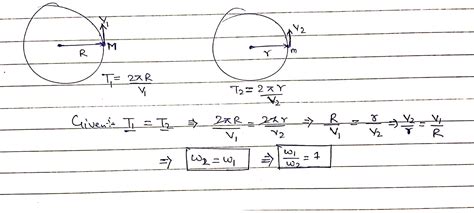 V₁ V₂
R M r m
T₁ = 2πR/V₁ T₂ = 2πr/V₂
Given:- T₁ = T₂ ⇒ 2πR/V₁ = 2πr/V₂ ⇒ R/V₁ = r/V₂ ⇒ V₂/r = V₁/R
⇒ ω₂ = ω₁ ⇒ ω₁/ω₂ = 1